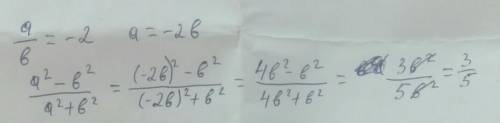 a/b = -2 a = -2b
(a² - b²)/(a² + b²) = ((-2b)² - b²)/((-2b)² + b²) = (4b² - b²)/(4b² + b²) = 3b²/5b² = 3/5